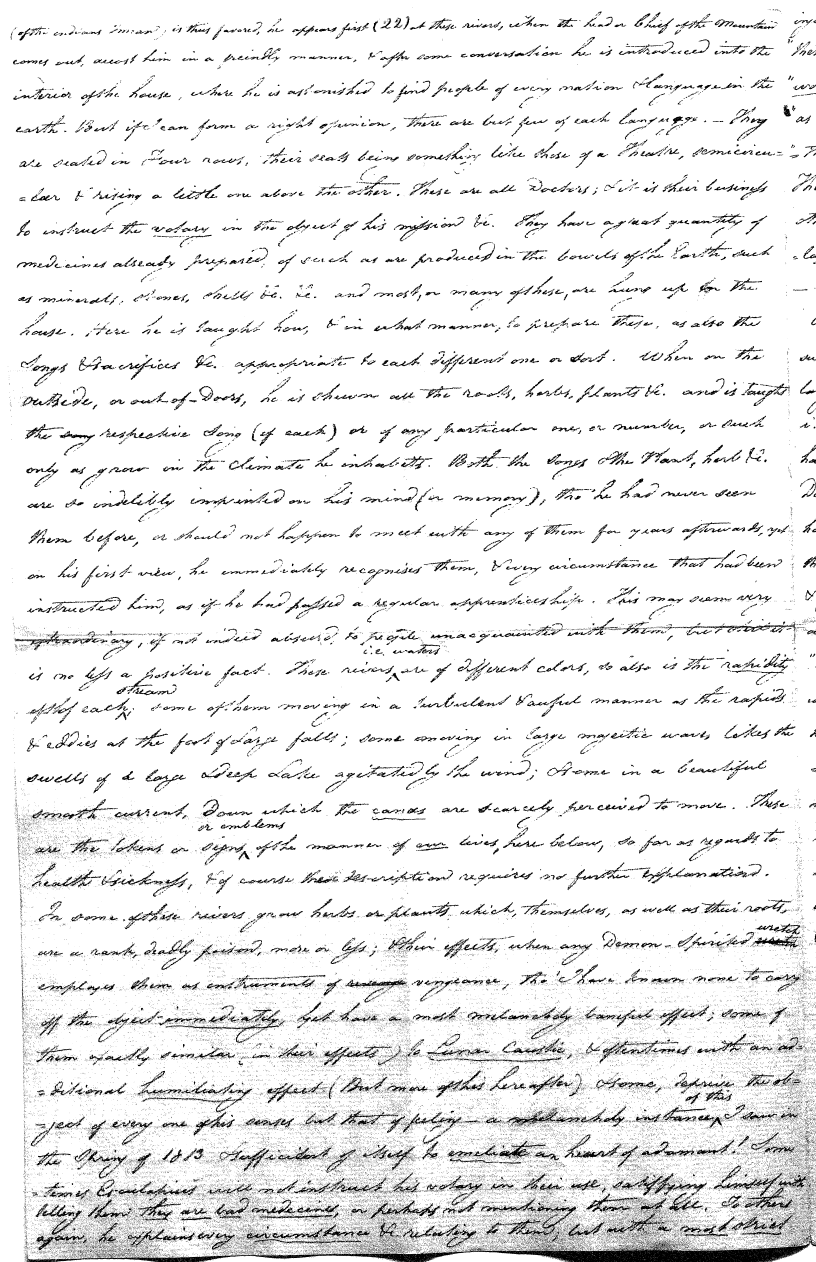 (of the indians I mean) is thus favored, he appears first (22) at these rivers, when the head or Chief of the Mountain
comes out, accost him in a friendly manner, & after some conversation he is introduced into the
interior of the house, where he is astonished to find people of every nation & language in the
earth. But if I can form a right opinion, there are but few of each language. — They
are seated in Four rows, their seats being something like those of a Theatre, semicircu=
=lar & rising a little one above the other. These are all Doctors; & it is their business
to instruct the votary in the object of his mission &c. They have a great quantity of
medicines already prepared, of such as are produced in the bowels of the Earth, such
as minerals, stones, shells &c. &c. and most, or many of these, are hung up in the
house. Here he is taught how, & in what manner, to prepare these, as also the
Songs & Sacrifices &c. appropriate to each different one or sort. When on the
outside, or out-of-Doors, he is shewn all the roots, herbs, plants &c. and is taught
the song respective Song (of each) or of any particular one, or number, or such
only as grow in the climate he inhabits. Both the Songs & the Plant, herb &c.
are so indelibly imprinted on his mind (or memory), tho' he had never seen
them before, or should not happen to meet with any of them for years afterwards, yet
on his first view, he immediately recognises them, & every circumstance that had been
instructed him, as if he had passed a regular apprenticeship. This may seem very
extraordinary, if not indeed absurd, to people unacquainted with them, but
i.e. waters
is no less a positive fact. These rivers, are of different colors, so also is the rapidity
stream
of each; some of them moving in a turbulent & awful manner as the rapids
& eddies at the foot of Large falls; some moving in large majestic waves like the
swells of a large & deep Lake agitated by the wind; & some in a beautiful
smooth current, Down which the canoes are scarcely perceived to move. These
or emblems
are the tokens or signs, of the manner of our lives, here below, so far as regards to
health & sickness, & of course the description requires no further explanations.
In some of these rivers grow herbs or plants which, themselves, as well as their roots,
are a rank, deadly poison, more or less; & their effects, when any Demon-Spirited wretch
employes them as instruments of revenge vengeance, tho' I have known none to carry
off the object immediately, yet have a most melancholy baneful effect; some of
them exactly similar (in their effects) to Lunar Caustic, & oftentimes with an ad-
=ditional humiliating effect (But more of this hereafter) & some, deprive the ob-
of this
=ject of every one of his senses but that of feeling — a melancholy instance, I saw in
the Spring of 1813 & sufficient of itself to emeliate an heart of adamant! Some
=times Esculapius will not instruct his votary in their use, satisfying himself with
telling them they are bad medecines, or perhaps not mentioning them at all. To others
again, he explains every circumstance &c relating to them; but with a most strict